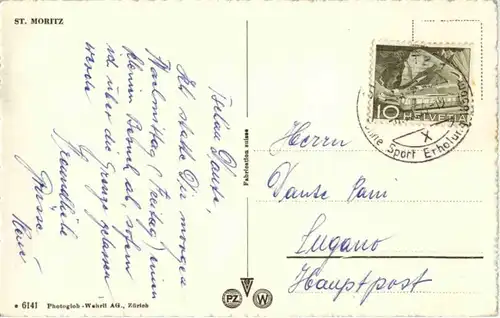 ST. MORITZ
Lieber Dante,
Ich statte Dir morgen
Nachmittag (Freitag) einen
kleinen Besuch ab, sofern
ich über die Grenze gelassen
werde
Freundliche
Grüsse
Fabrication suisse
10
HELVETIA
Sport Erholung
X
Herrn
Dante Pani
Lugano
Hauptpost
6141 Photoglob-Wehrli AG., Zürich
PZ
W